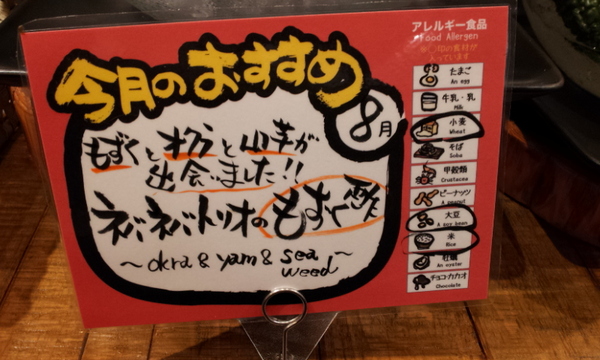 今月のおすすめ
8月
もずくとオクラと山芋が
出会いました!!
ネバネバトリオのもずく酢
~okra & yam & sea weed~
アレルギー食品
Food Allergen
○印の食材が
入っています
たまご
An egg
牛乳・乳
Milk
小麦
Wheat
そば
Soba
甲殻類
Crustacea
ピーナッツ
A peanut
大豆
A soy bean
米
Rice
牡蠣
An oyster
チョコ・カカオ
Chocolate